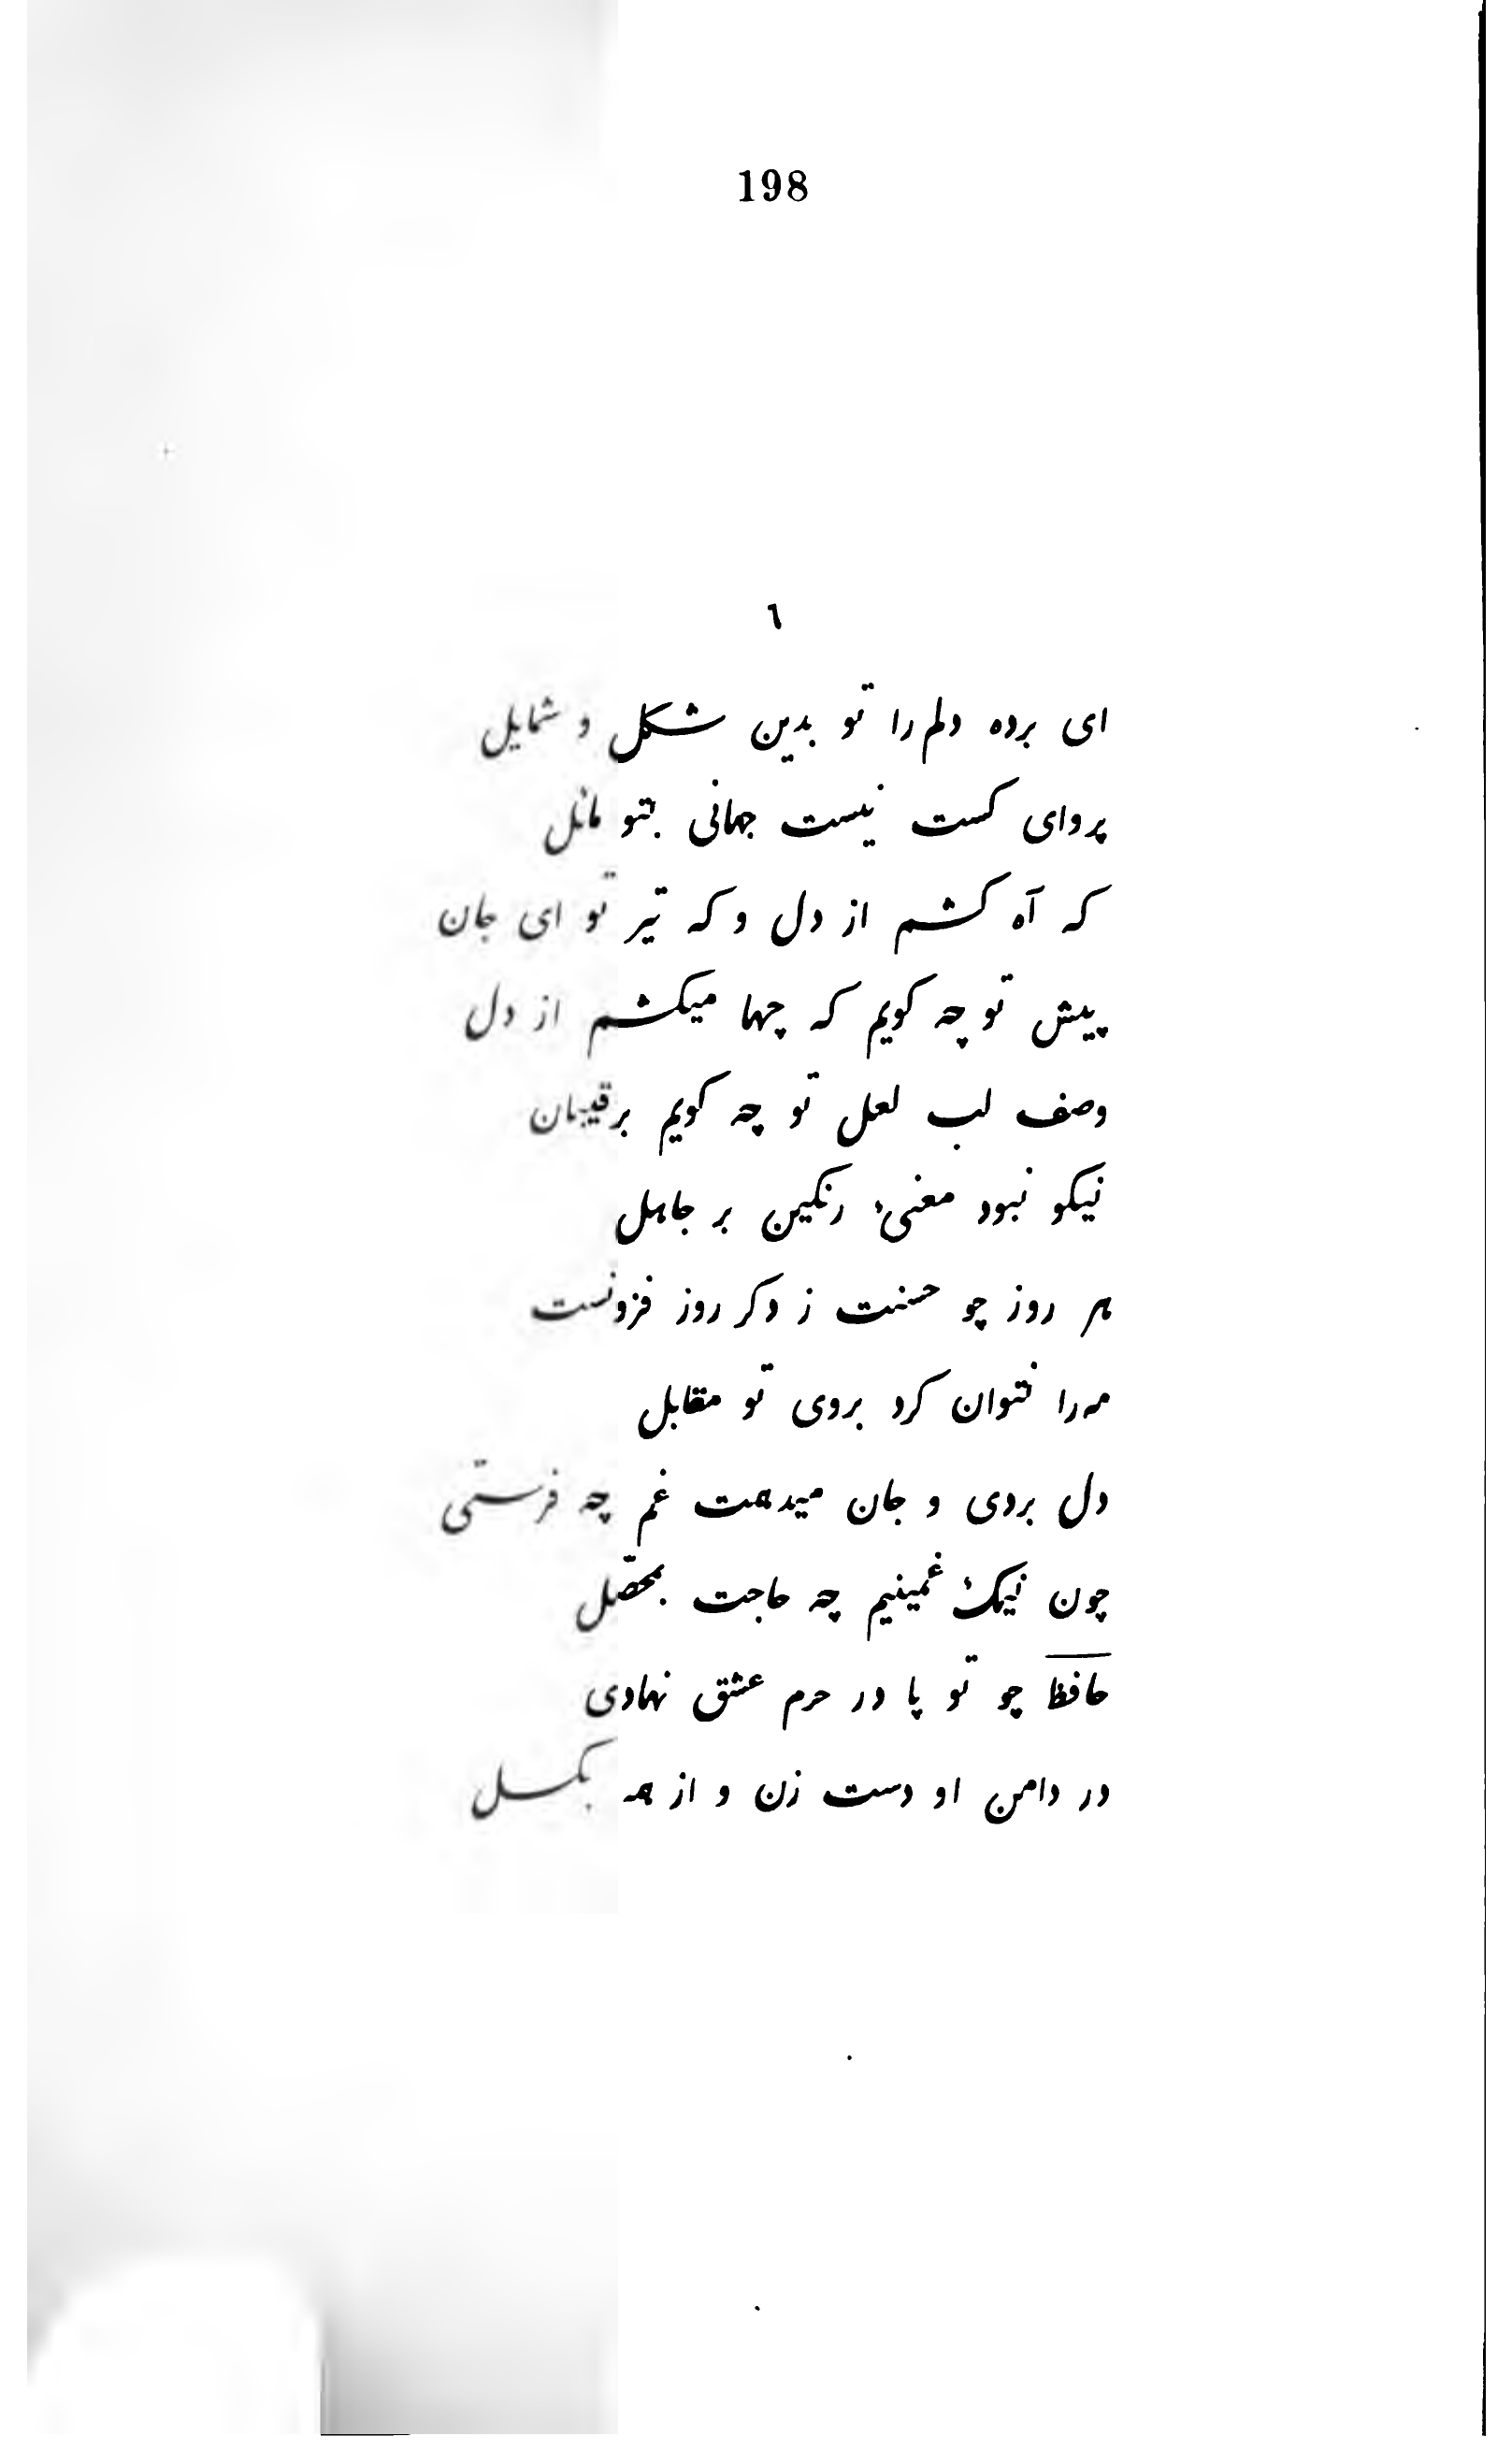 198
٦
ای برده دلم را تو بدین شکل و شمایل
پروای کست نیست جهانی بتو مائل
که آه کشم از دل و که تیر تو ای جان
پیش تو چه کویم که چها میکشم از دل
وصف لب لعل تو چه کویم برقیبان
نیکو نبود معنیٔ رنکین بر جاهل
هر روز چو حسنت ز دکر روز فزونست
مه را نتوان کرد بروی تو مقابل
دل بردی و جان میدهمت غم چه فرستی
چون نیک غمینیم چه حاجت بمحصّل
حافظ چو تو پا در حرم عشق نهادی
در دامن او دست زن و از همه بکسل